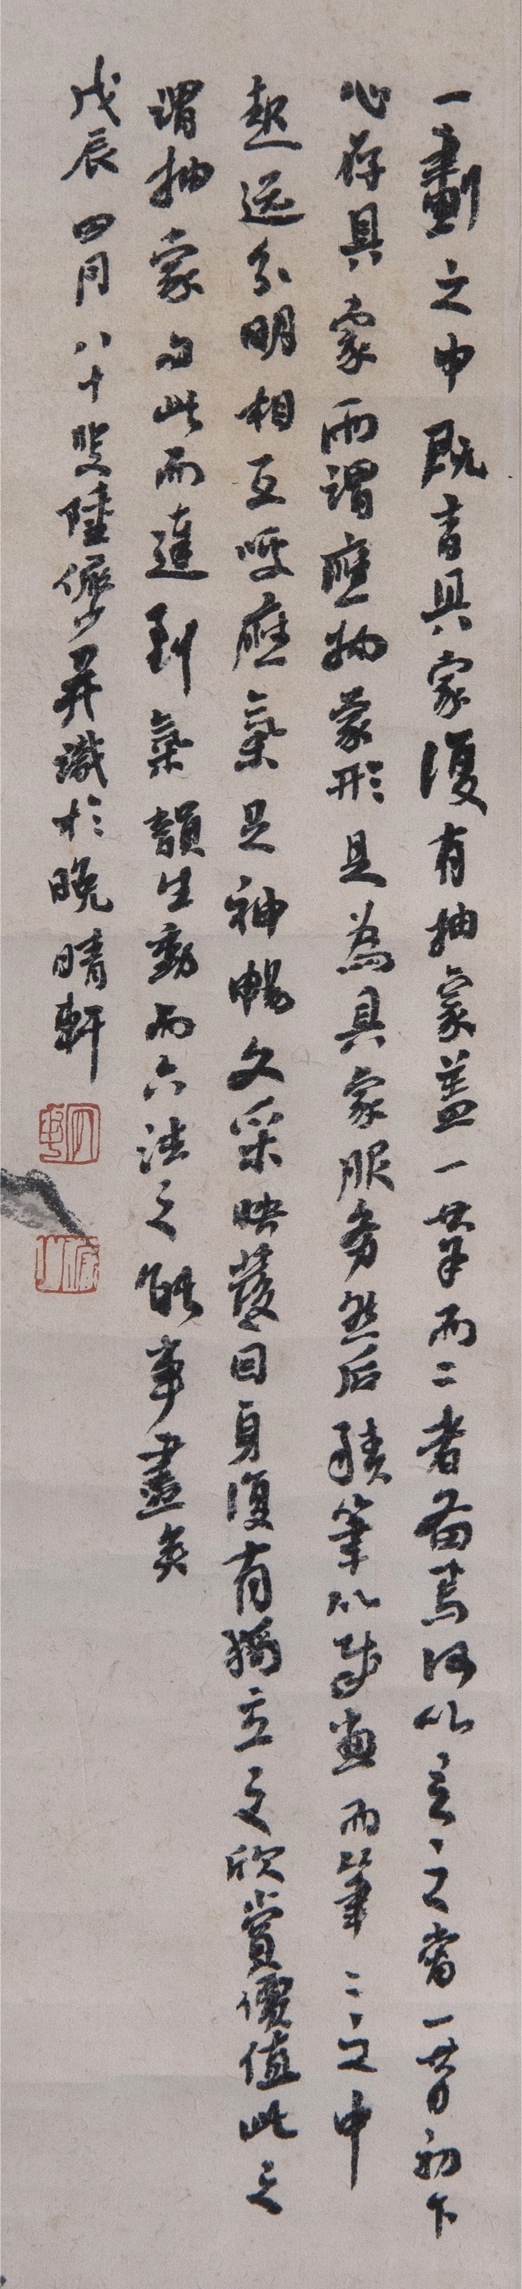 一劃之中既有具象復有抽象蓋一筆而二者备焉何以言之當一筆初下
心存具象而謂應物象形是為具象服务然后積筆以成畫而筆筆之中
起迄分明相互呼應氣足神暢文采映發自身復有獨立之欣賞價值此之
謂抽象由此而達到氣韻生動而六法之能事盡矣
戊辰四月八十叟陸儼少并識於晚晴軒